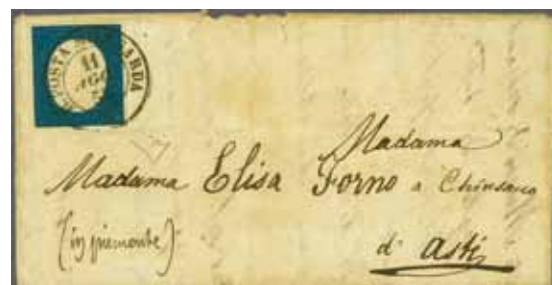 POSTA SARDA
11
AGO
Madama
Madama Elisa Forno a Chiusano
(in piemonte)
d'Asti